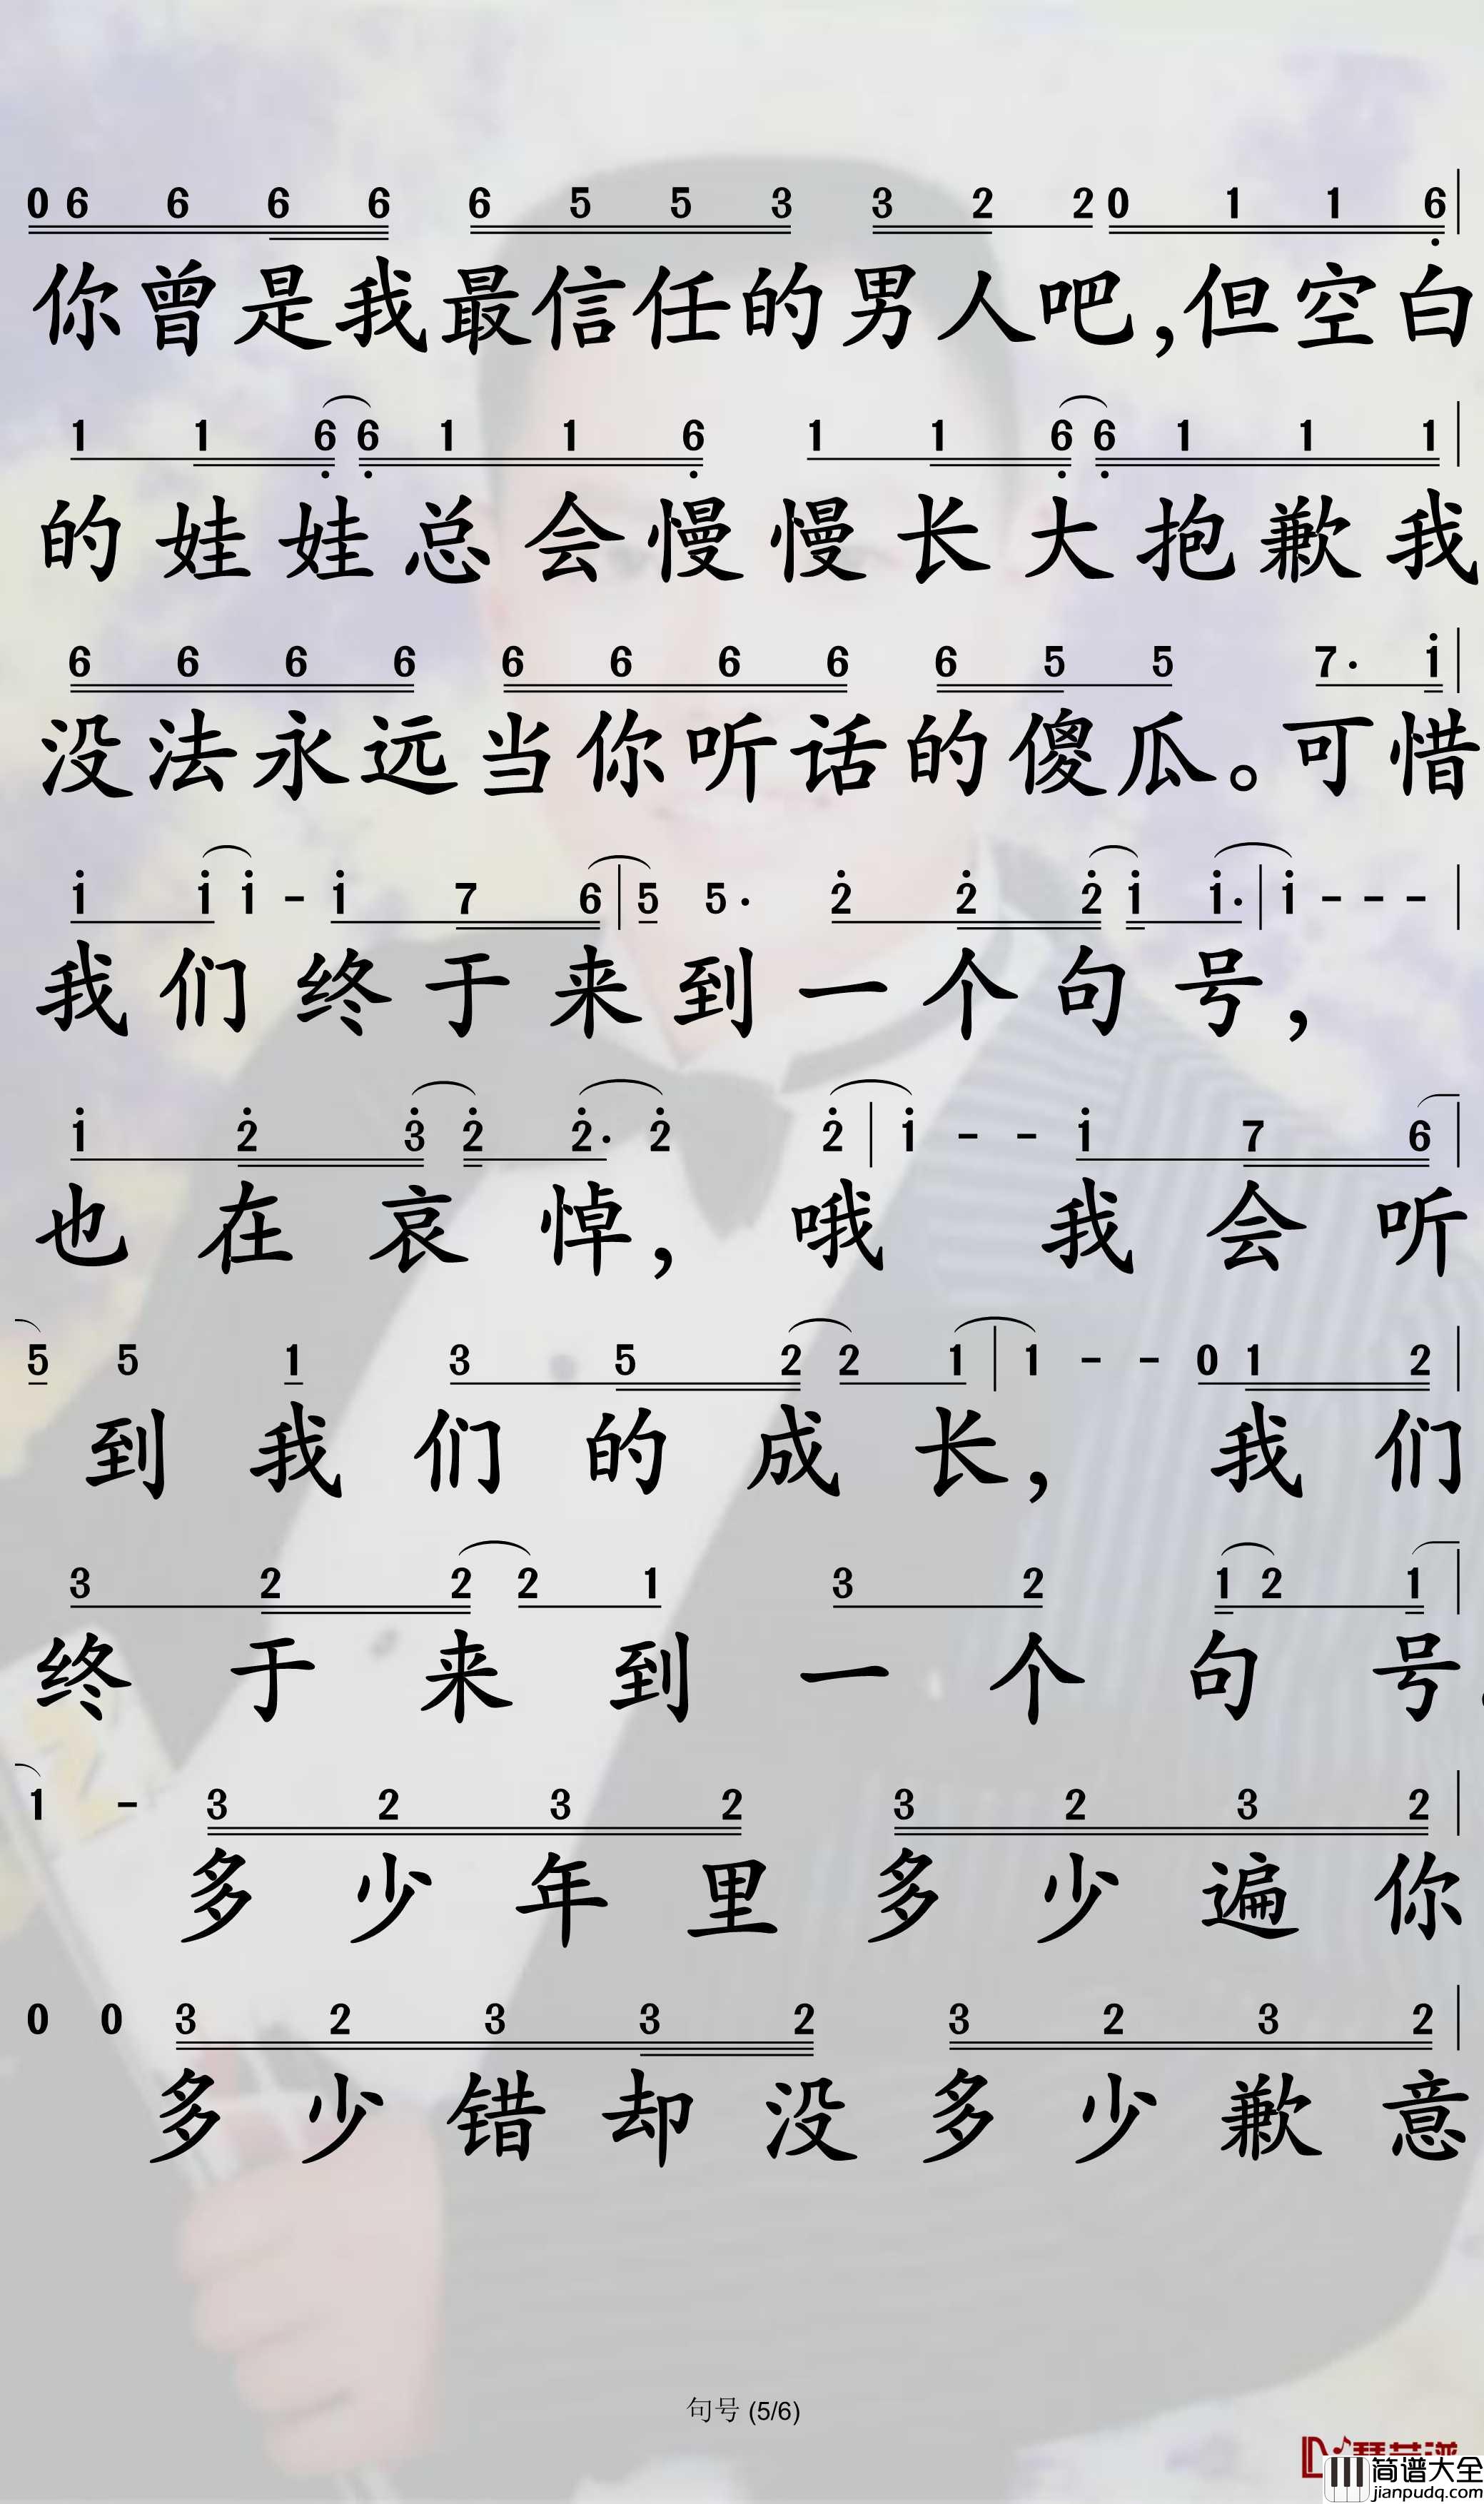 0 6 6 6 6 6 5 5 3 3 2 2 0 1 1 6
你曾是我最信任的男人吧,但空白
1 1 6 6 1 1 6 1 1 6 6 1 1 1
的娃娃总会慢慢长大抱歉我
6 6 6 6 6 6 6 6 6 5 5 7· 1
没法永远当你听话的傻瓜。可惜
1 1 1 - 1 7 6 | 5 5· 2 2 2 1 1· | 1 - - -
我们终于来到一个句号,
1 2 3 2 2· 2 2 | 1 - - 1 7 6
也在哀悼,哦 我会听
5 5 1 3 5 2 2 1 | 1 - - 0 1 2
到我们的成长,我们
3 2 2 2 1 3 2 1 2 1
终于来到一个句号
1 - 3 2 3 2 3 2 3 2
多少年里多少遍你
0 0 3 2 3 3 2 3 2 3 2
多少错却没多少歉意
句号 (5/6)
简谱大全
jianpudq.com